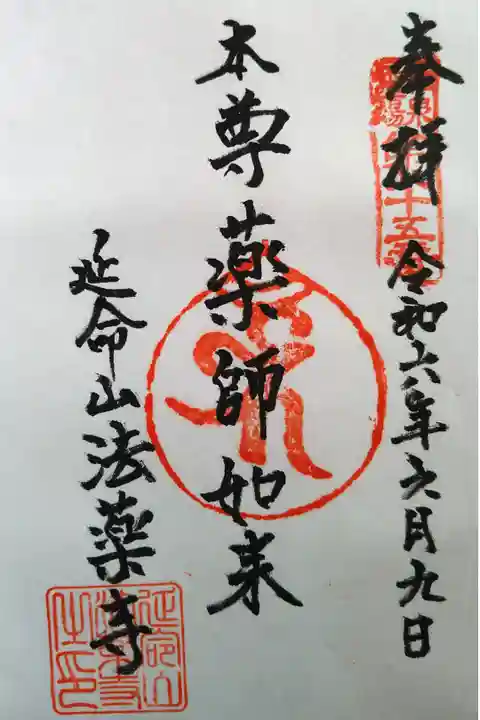 奉拝 令和六年六月九日
本尊薬師如来
延命山法薬寺
十五
延命山
法薬寺
之印